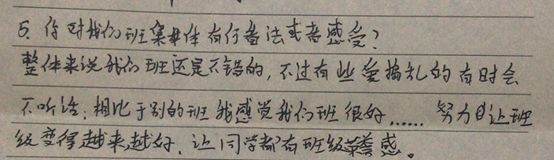 5. 你对我们班集体有何看法或者感受?
整体来说我们班还是不错的,不过有些爱捣乱的有时会
不听话;相比于别的班我感觉我们班很好……努力让班
级变得越来越好,让同学都有班级荣誉感。